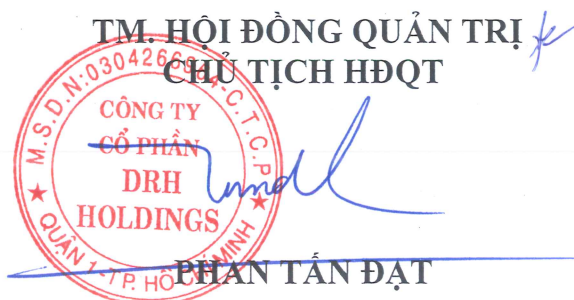 TM. HỘI ĐỒNG QUẢN TRỊ
CHỦ TỊCH HĐQT
M.S.D.N:0304266964-C.T.C.P
CÔNG TY
CỔ PHẦN
DRH
HOLDINGS
QUẬN 1-TP. HỒ CHÍ MINH
PHAN TẤN ĐẠT